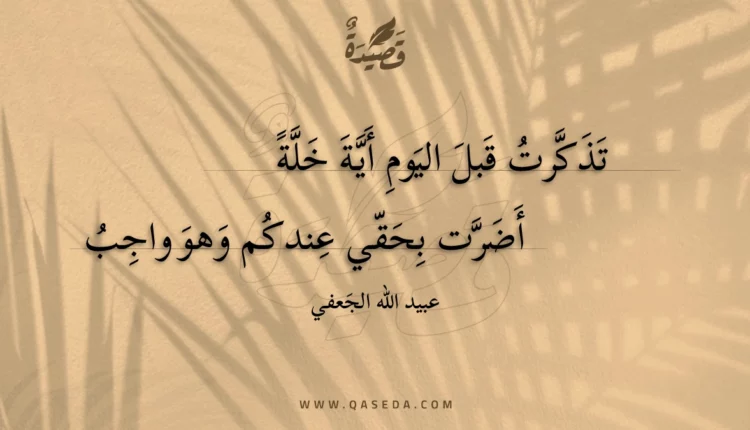 قَصِيْدَةٌ
تَذَكَّرتُ قَبلَ اليَومِ أَيَّةَ خَلَّةً
أَضَرَّت بِحَقّي عِندكُم وَهوَ واجِبُ
عبيد الله الجَعفي
WWW.QASEDA.COM